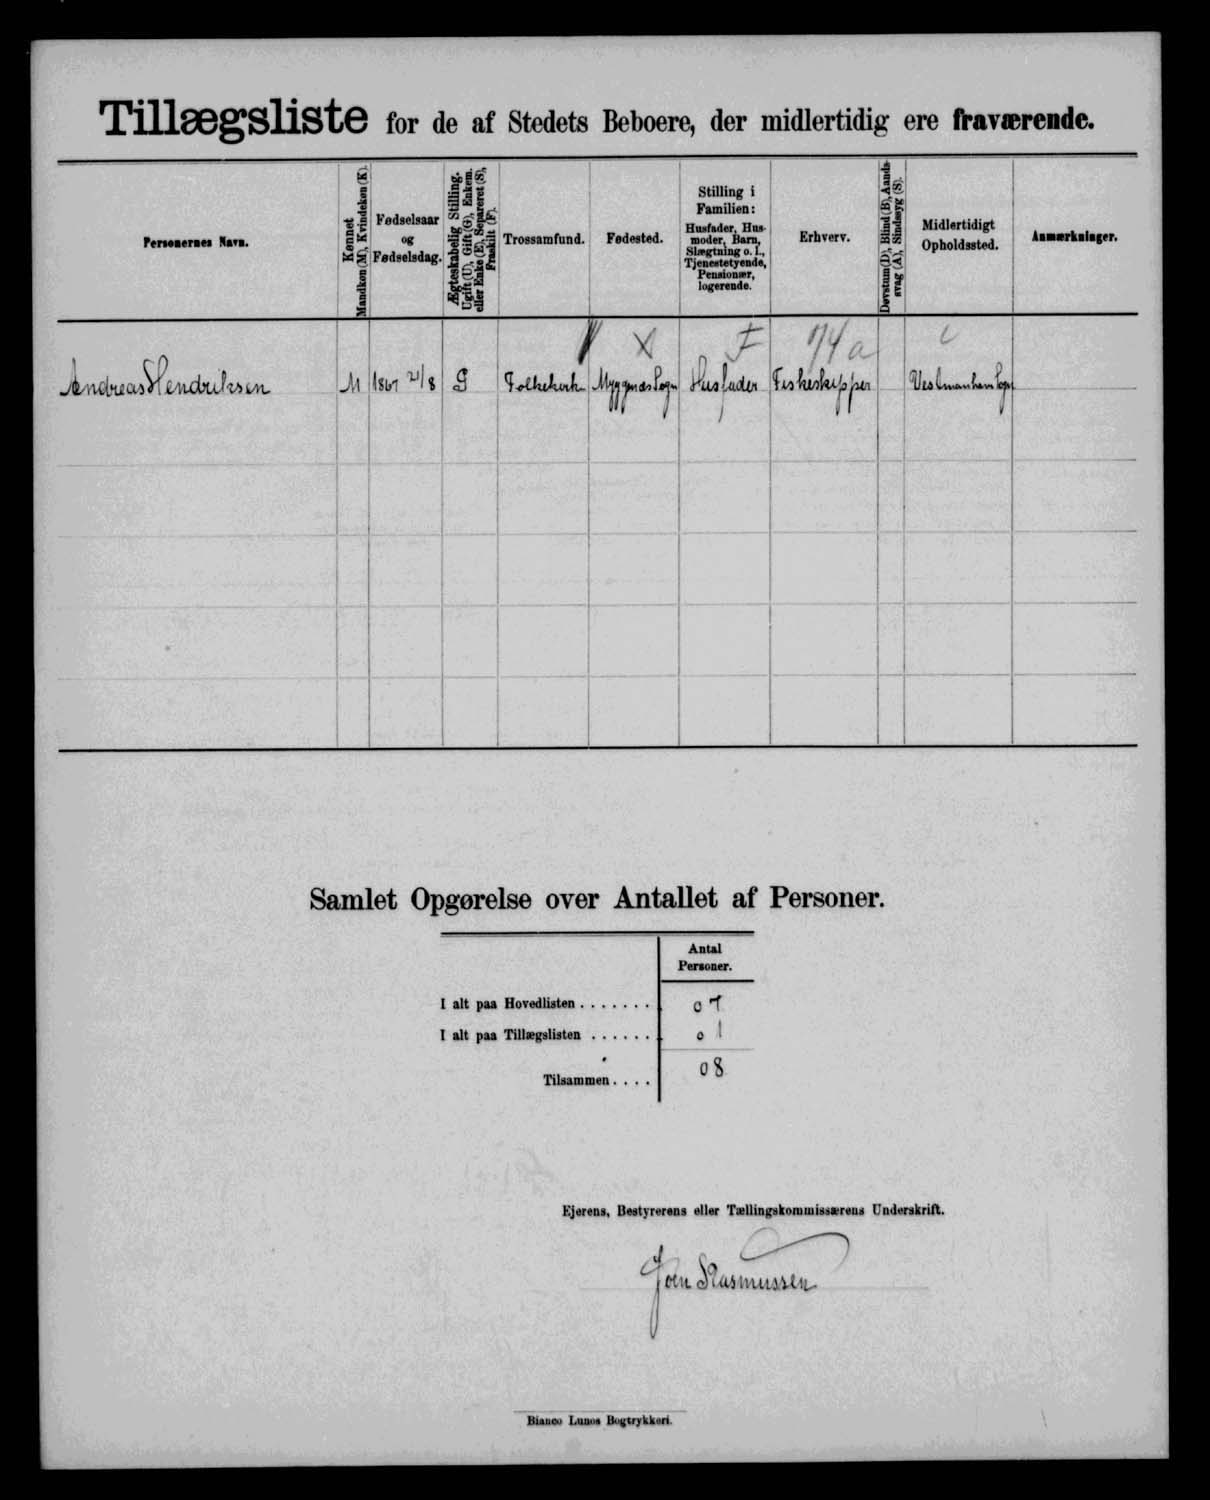 Tillægsliste for de af Stedets Beboere, der midlertidig ere fraværende.
Personernes Navn.
Kønnet
Mandkøn (M), Kvindekøn (K).
Fødselsaar
og
Fødselsdag.
Ægteskabelig Stilling.
Ugift (U), Gift (G), Enkem.
eller Enke (E), Separeret (S),
Fraskilt (F).
Trossamfund.
Fødested.
Stilling i
Familien:
Husfader, Hus-
moder, Barn,
Slægtning o. l.,
Tjenestetyende,
Pensionær,
logerende.
Erhverv.
Døvstum (D), Blind (B), Aands-
svag (A), Sindssyg (S).
Midlertidigt
Opholdssted.
Anmærkninger.
X F
Andreas Hendriksen M 1867 21/8 G Folkekirk Myggenæs Sogn Husfader Fiskeskipper Vestmanhavn Sogn
Samlet Opgørelse over Antallet af Personer.
Antal
Personer.
I alt paa Hovedlisten . . . . . . . 07
I alt paa Tillægslisten . . . . . . 01
Tilsammen . . . . 08
Ejerens, Bestyrerens eller Tællingskommissærens Underskrift.
Joen Rasmussen
Bianco Lunos Bogtrykkeri.